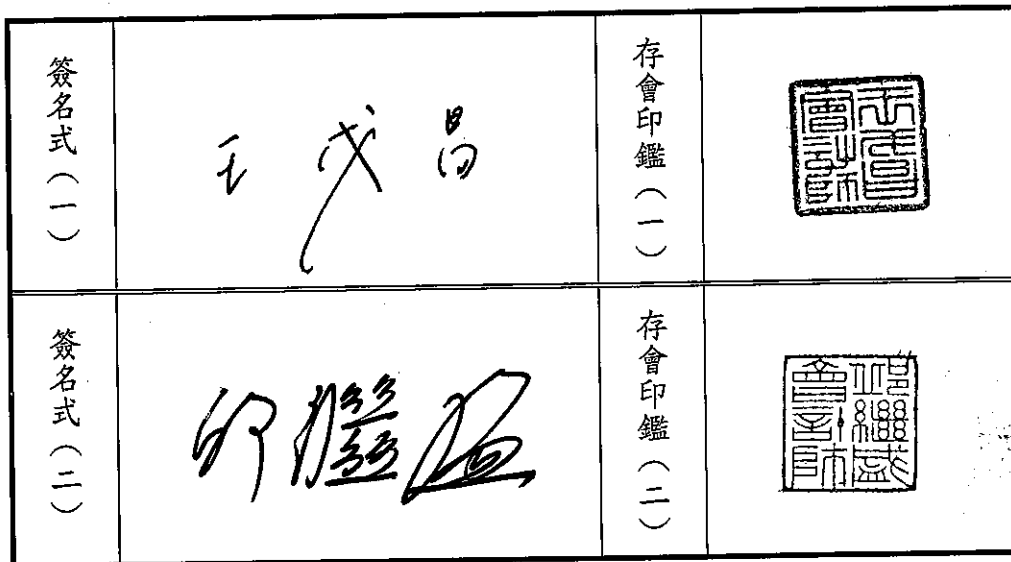 簽名式（一）
王戊昌
存會印鑑（一）
王戊昌
會計師
簽名式（二）
邱繼盛
存會印鑑（二）
邱繼盛
會計師